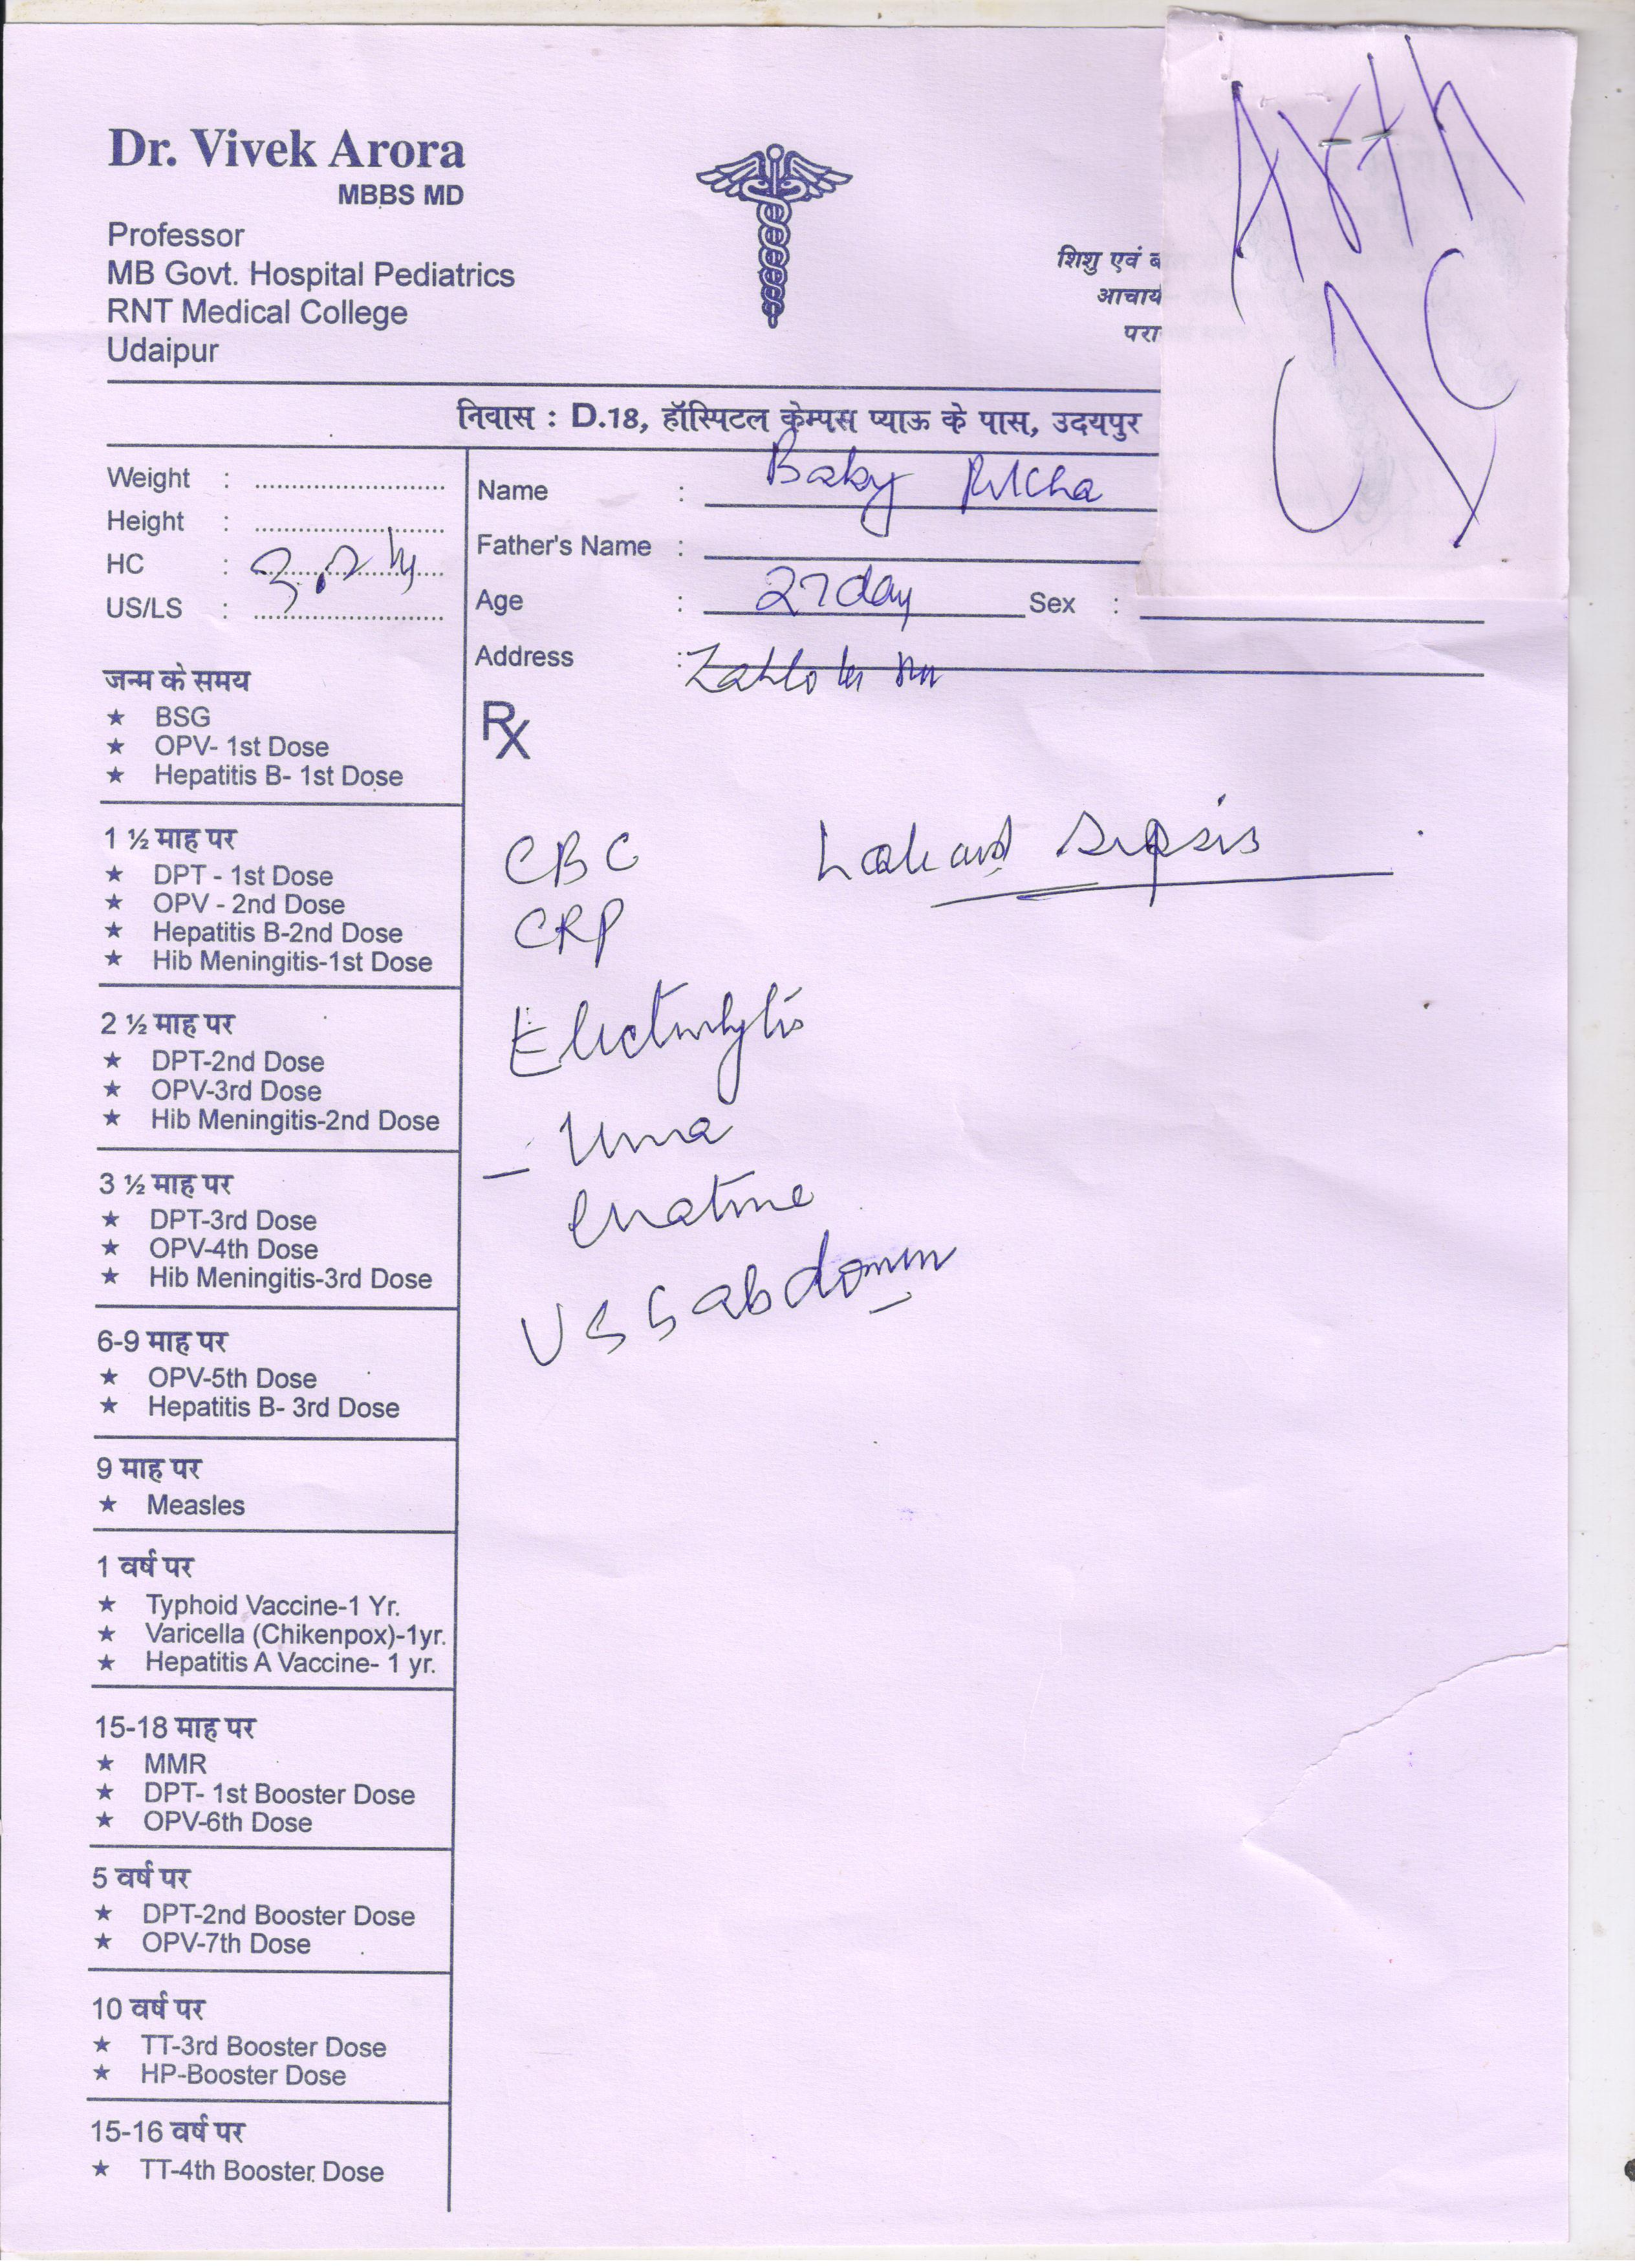 Dr. Vivek Arora
MBBS MD
Professor
MB Govt. Hospital Pediatrics
RNT Medical College
Udaipur
शिशु एवं ब
आचार्य
परा
Arth
निवास : D.18, हॉस्पिटल केम्पस प्याऊ के पास, उदयपुर
Weight :
Height :
HC :
US/LS :
Name : Baby Richa
Father's Name :
Age : 27 day Sex :
Address :
Rx
जन्म के समय
★ BSG
★ OPV- 1st Dose
★ Hepatitis B- 1st Dose
1 ½ माह पर
★ DPT - 1st Dose
★ OPV - 2nd Dose
★ Hepatitis B-2nd Dose
★ Hib Meningitis-1st Dose
2 ½ माह पर
★ DPT-2nd Dose
★ OPV-3rd Dose
★ Hib Meningitis-2nd Dose
3 ½ माह पर
★ DPT-3rd Dose
★ OPV-4th Dose
★ Hib Meningitis-3rd Dose
6-9 माह पर
★ OPV-5th Dose
★ Hepatitis B- 3rd Dose
9 माह पर
★ Measles
1 वर्ष पर
★ Typhoid Vaccine-1 Yr.
★ Varicella (Chikenpox)-1yr.
★ Hepatitis A Vaccine- 1 yr.
15-18 माह पर
★ MMR
★ DPT- 1st Booster Dose
★ OPV-6th Dose
5 वर्ष पर
★ DPT-2nd Booster Dose
★ OPV-7th Dose
10 वर्ष पर
★ TT-3rd Booster Dose
★ HP-Booster Dose
15-16 वर्ष पर
★ TT-4th Booster Dose
CBC
sepsis
CRP
Electrolytes
- Urea
Creatine
USG abdomen